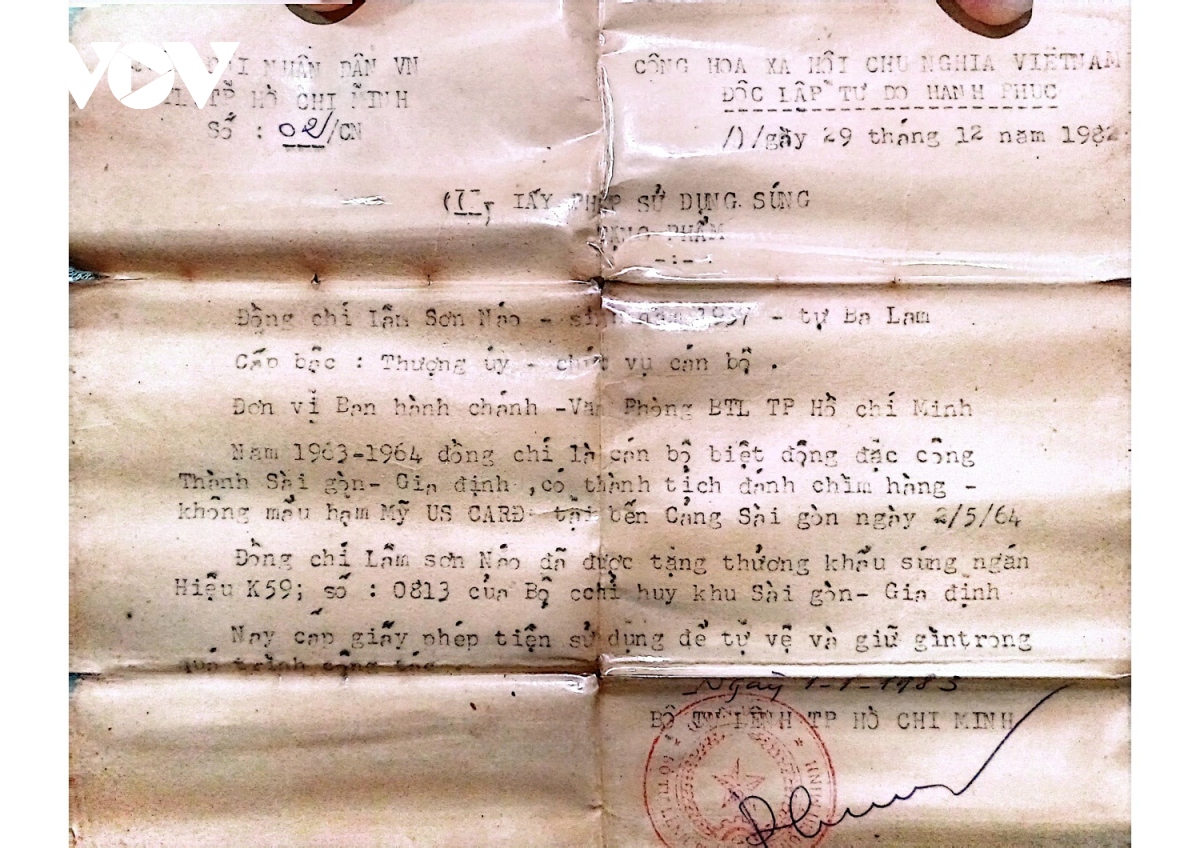 VOV
NHÂN DÂN VN
TP HỒ CHÍ MINH
Số : 02/CN
CỘNG HOA XA HỘI CHU NGHIA VIỆTNAM
ĐỘC LẬP TỰ DO HẠNH PHUC
gầy 29 tháng 12 năm 1982
IẤY PHÉP SỬ DỤNG SÚNG
TẶNG PHẨM
Đồng chí Lâm Sơn Náo - sinh năm 1937 - tự Ba Lam
Cấp bậc : Thượng úy - chức vụ cán bộ .
Đơn vị Ban hành chánh -Văn Phòng BTL TP Hồ chí Minh
Năm 1963-1964 đồng chí là cán bộ biệt động đặc công
Thành Sài gòn- Gia định ,có thành tịch đánh chìm hàng -
không mẩu hạm Mỹ US CARD tại bến Cảng Sài gòn ngày 2/5/64
Đồng chí Lâm sơn Náo đã được tặng thưởng khẩu súng ngắn
Hiệu K59; số : 0813 của Bộ cchỉ huy khu Sài gòn- Gia định
Nay cấp giấy phép tiện sử dụng để tự vệ và giữ gìntrong
quá trình công tác
Ngày 1-1-1983
BỘ TƯ LỆNH TP HỒ CHI MINH